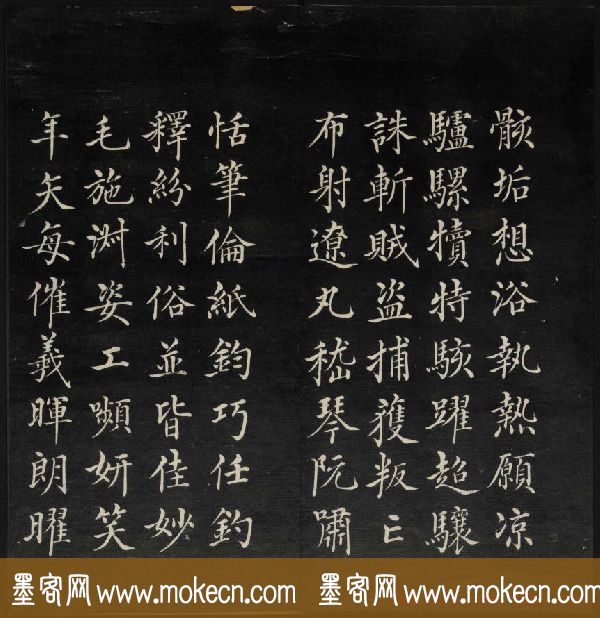 骸垢想浴執熱願凉
驢騾犢特駭躍超驤
誅斬賊盜捕獲叛亡
布射遼丸嵇琴阮嘯
恬筆倫紙鈞巧任釣
釋紛利俗並皆佳妙
毛施淑姿工嚬妍笑
年矢每催羲暉朗曜
墨客网 www.mokecn.com
墨客网 www.mokecn.com